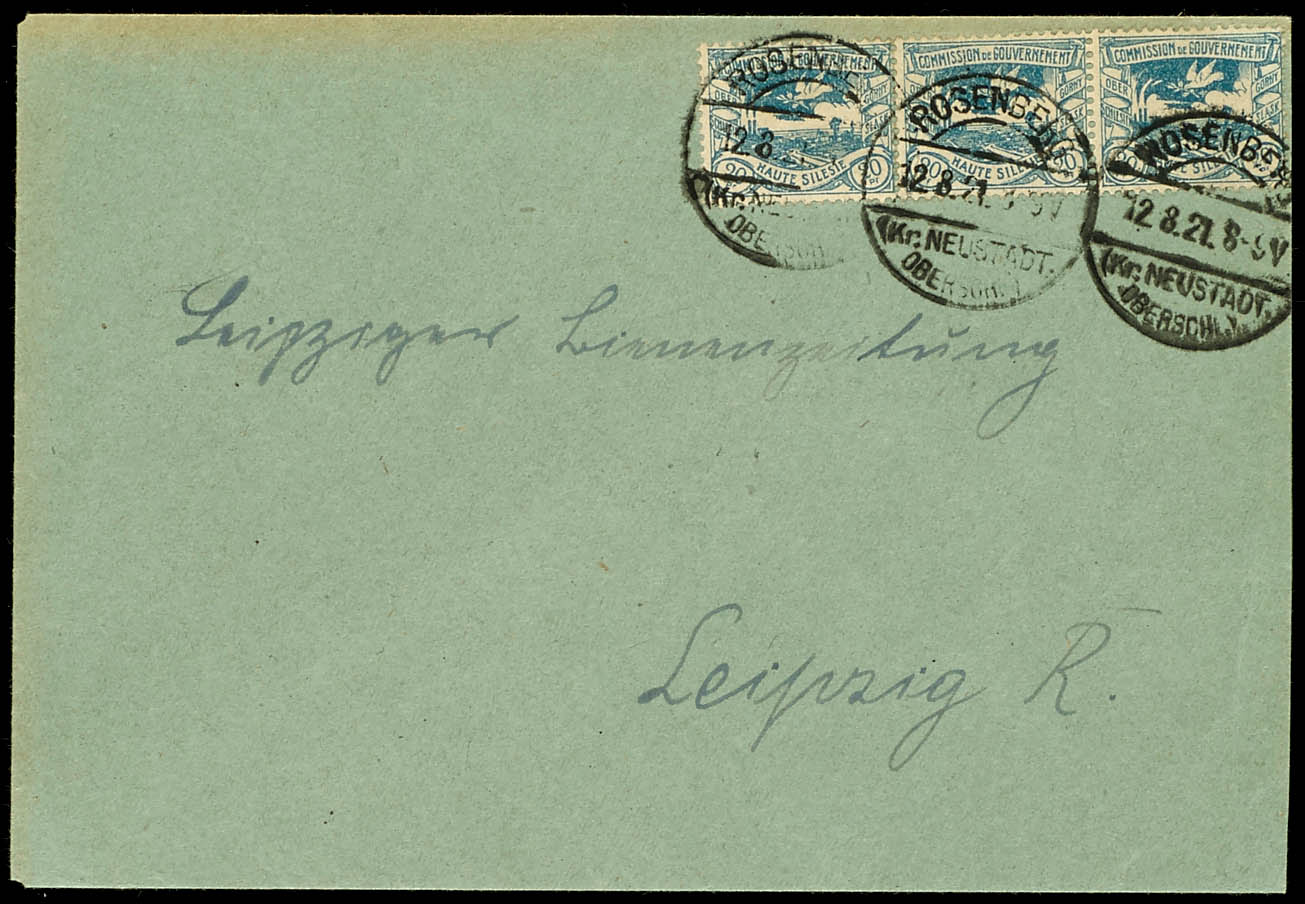 COMMISSION DE GOUVERNEMENT COMMISSION DE GOUVERNEMENT COMMISSION DE GOUVERNEMENT
OBER GORNY OBER GORNY
SCHLESIEN ŚLĄSK
20 HAUTE SILESIE 20 PF
20 HAUTE SILESIE 20
20 HAUTE SILESIE
ROSENBE
12.8
(Kr. NEUSTADT.
OBERSCHL.)
ROSENBERG
12.8.21. 8-9V
(Kr. NEUSTADT.
OBERSCHL.)
ROSENBERG
12 8.21. 8-9V
(Kr. NEUSTADT.
OBERSCHL.)
Leipziger Bienenzeitung
Leipzig R.